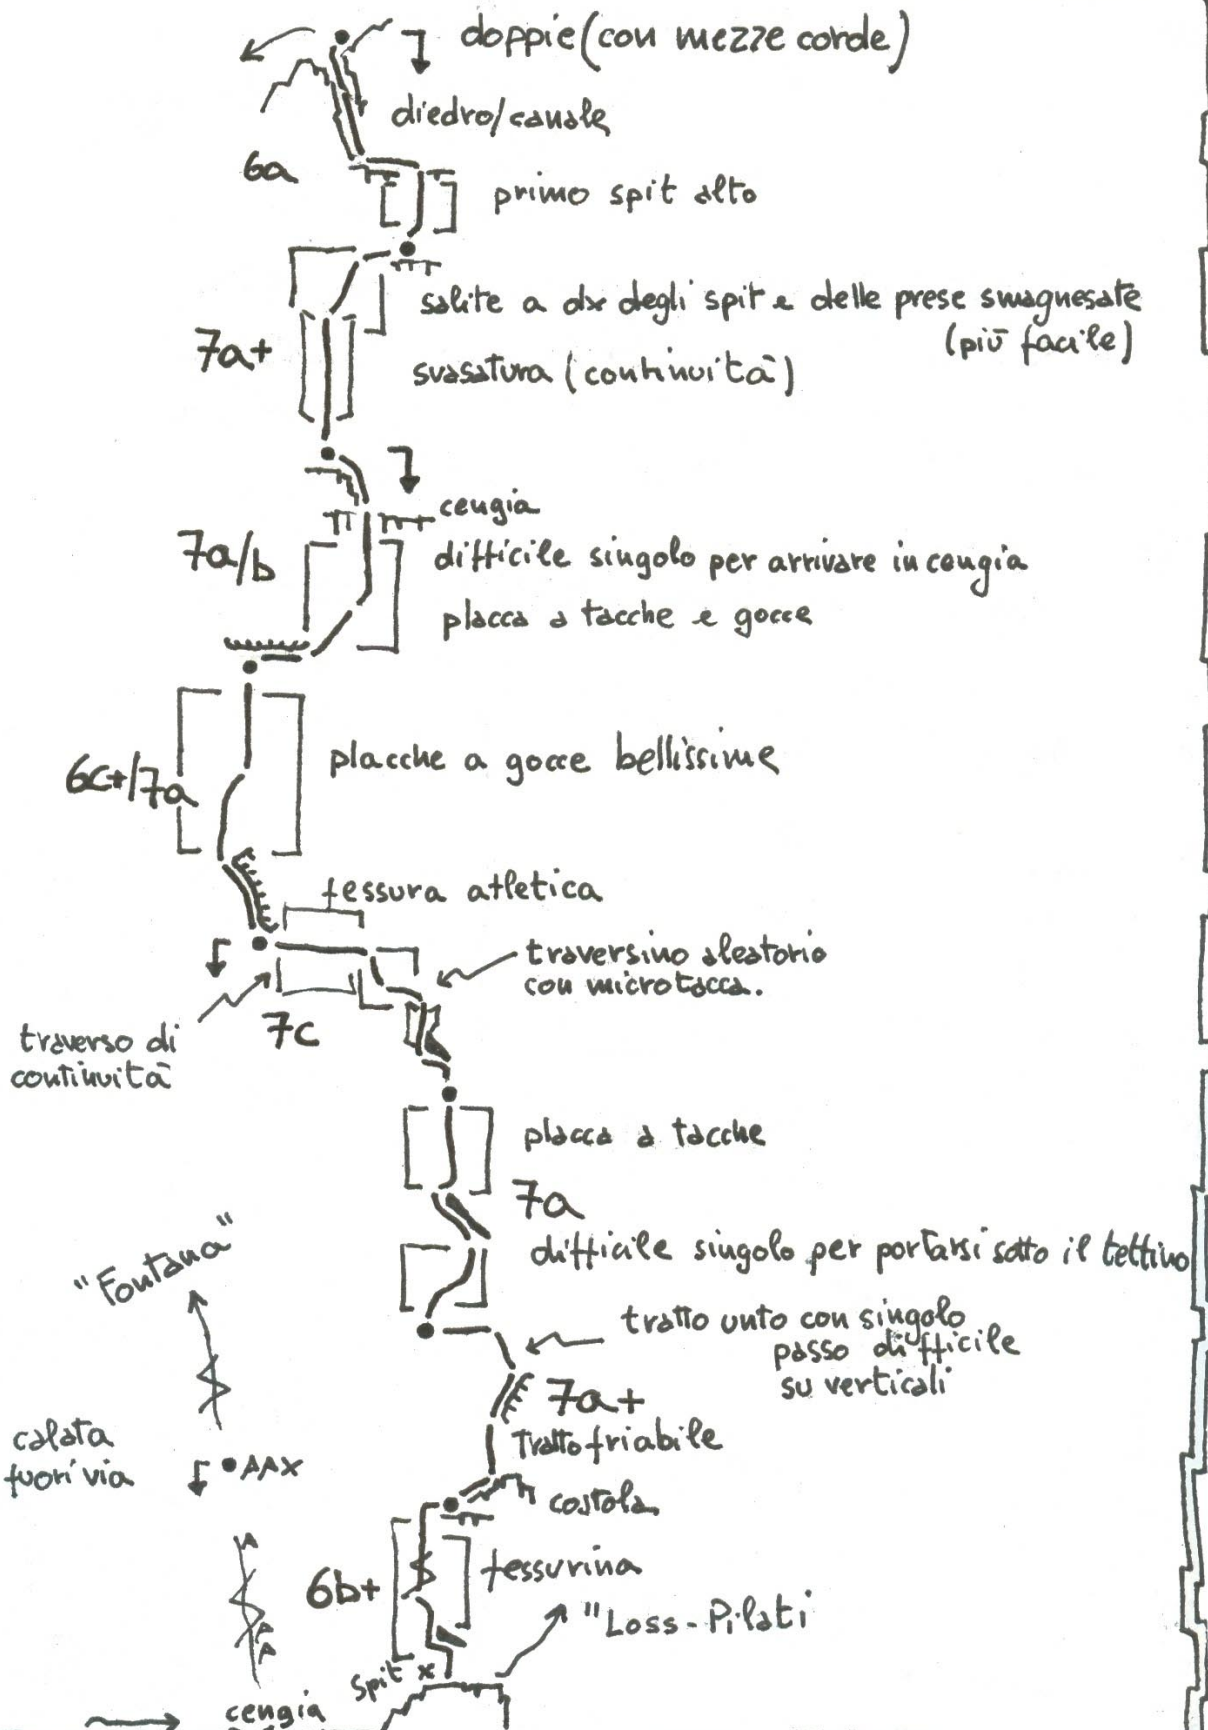 doppie (con mezze corde)
diedro/canale
6a
primo spit alto
salite a dx degli spit e delle prese smagnesate
(più facile)
7a+
svasatura (continuità)
cengia
7a/b
difficile singolo per arrivare in cengia
placca a tacche e gocce
placche a gocce bellissime
6c+/7a
fessura atletica
traversino aleatorio
con microtacca.
7c
traverso di
continuità
placca a tacche
7a
"Fontana"
difficile singolo per portarsi sotto il tettino
tratto unto con singolo
passo difficile
su verticali
7a+
calata
fuori via
Tratto friabile
AAX
costola
fessurina
6b+
"Loss-Pilati
Spit x
cengia